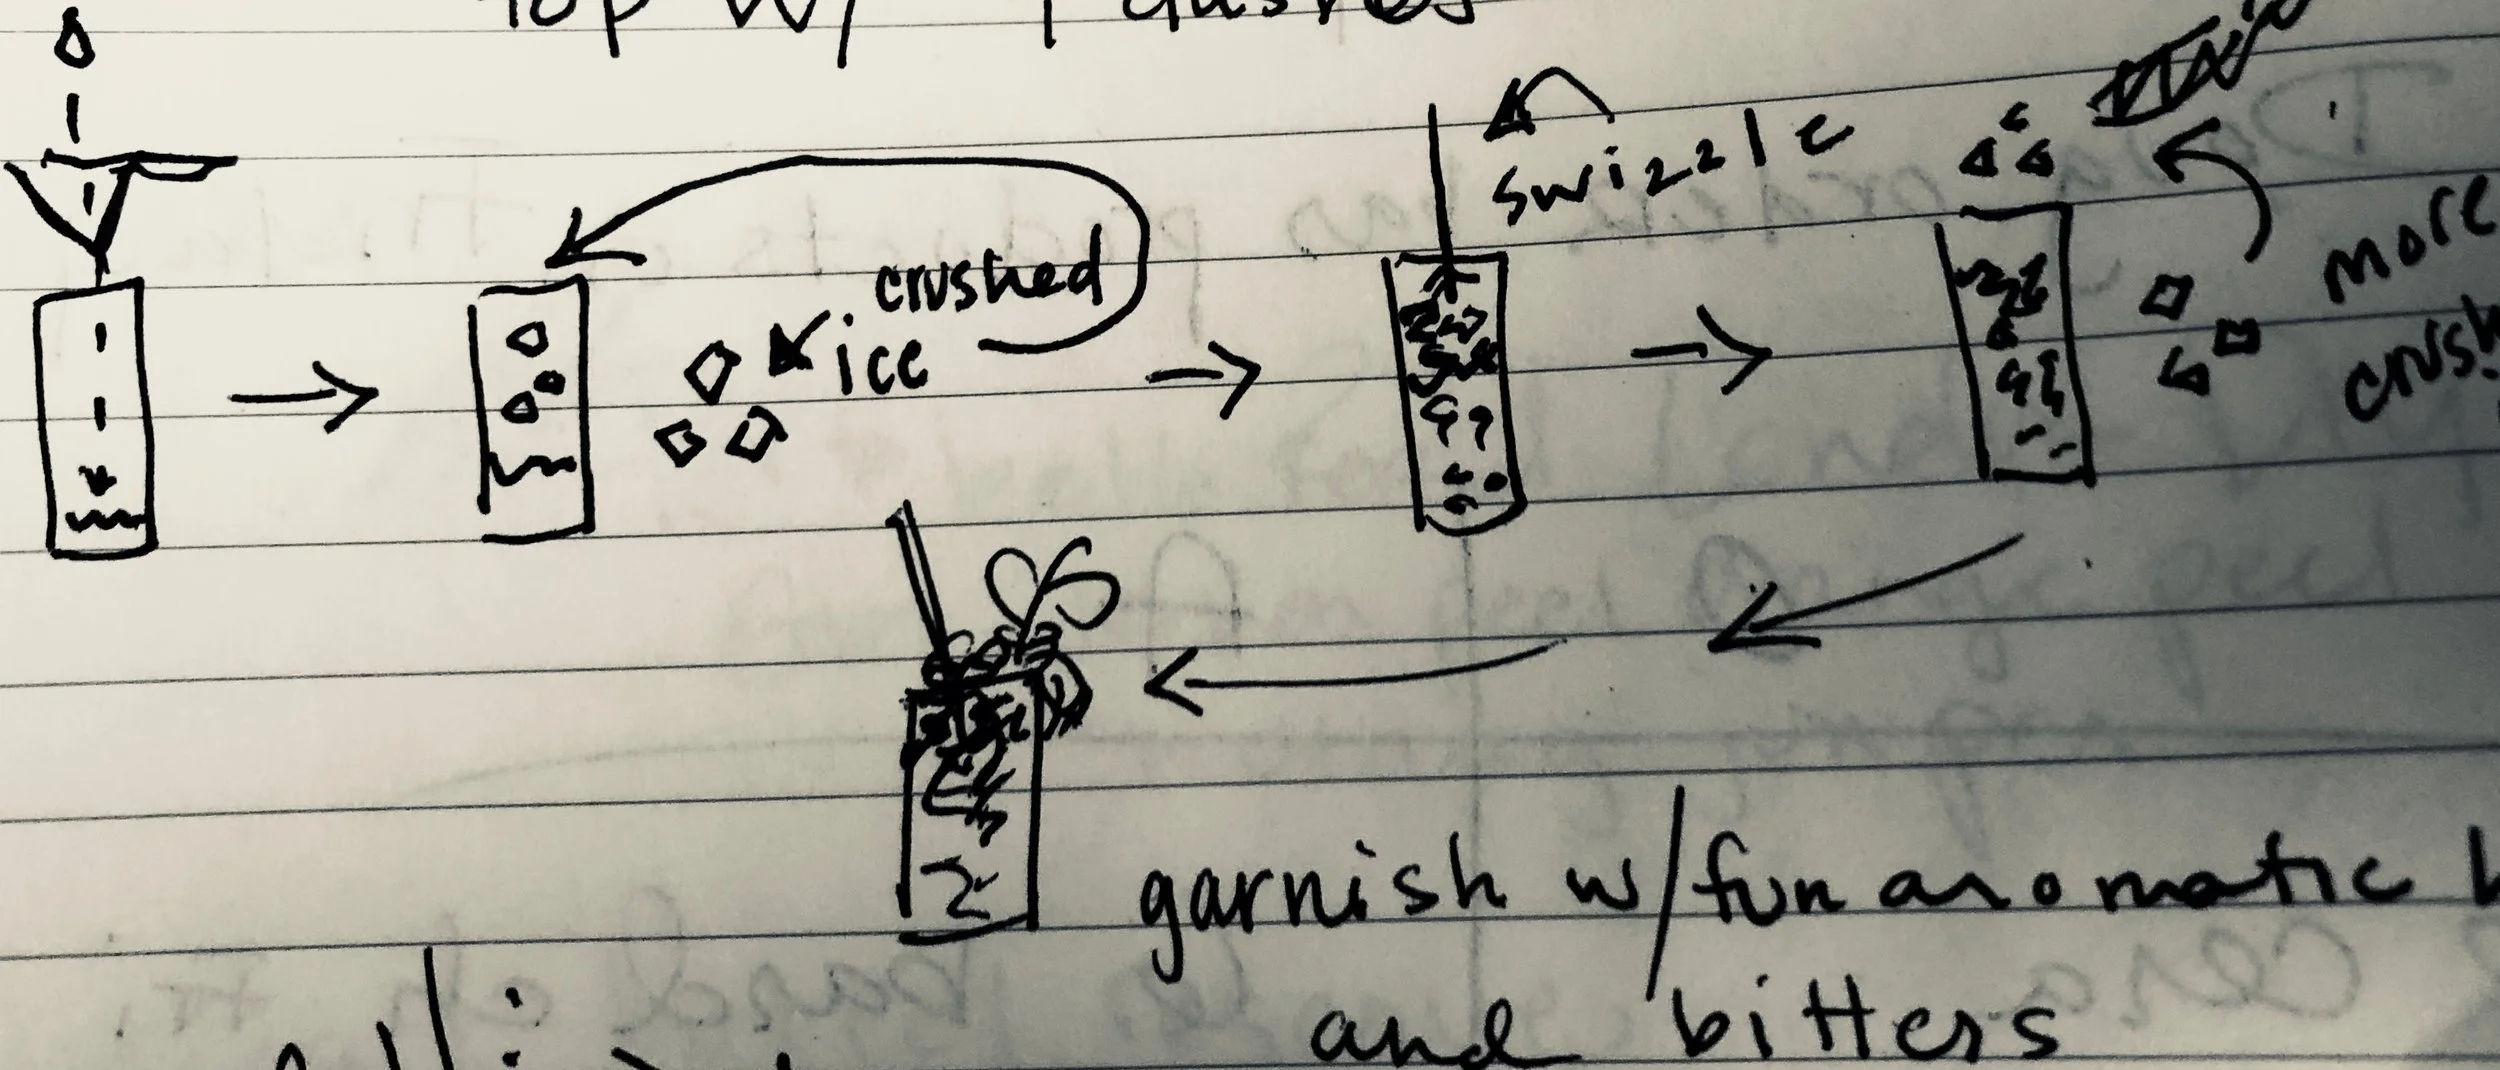 top w/ 4 dashes
swizzle
crushed
ice
more
crush
garnish w/ fun aromatic
and bitters